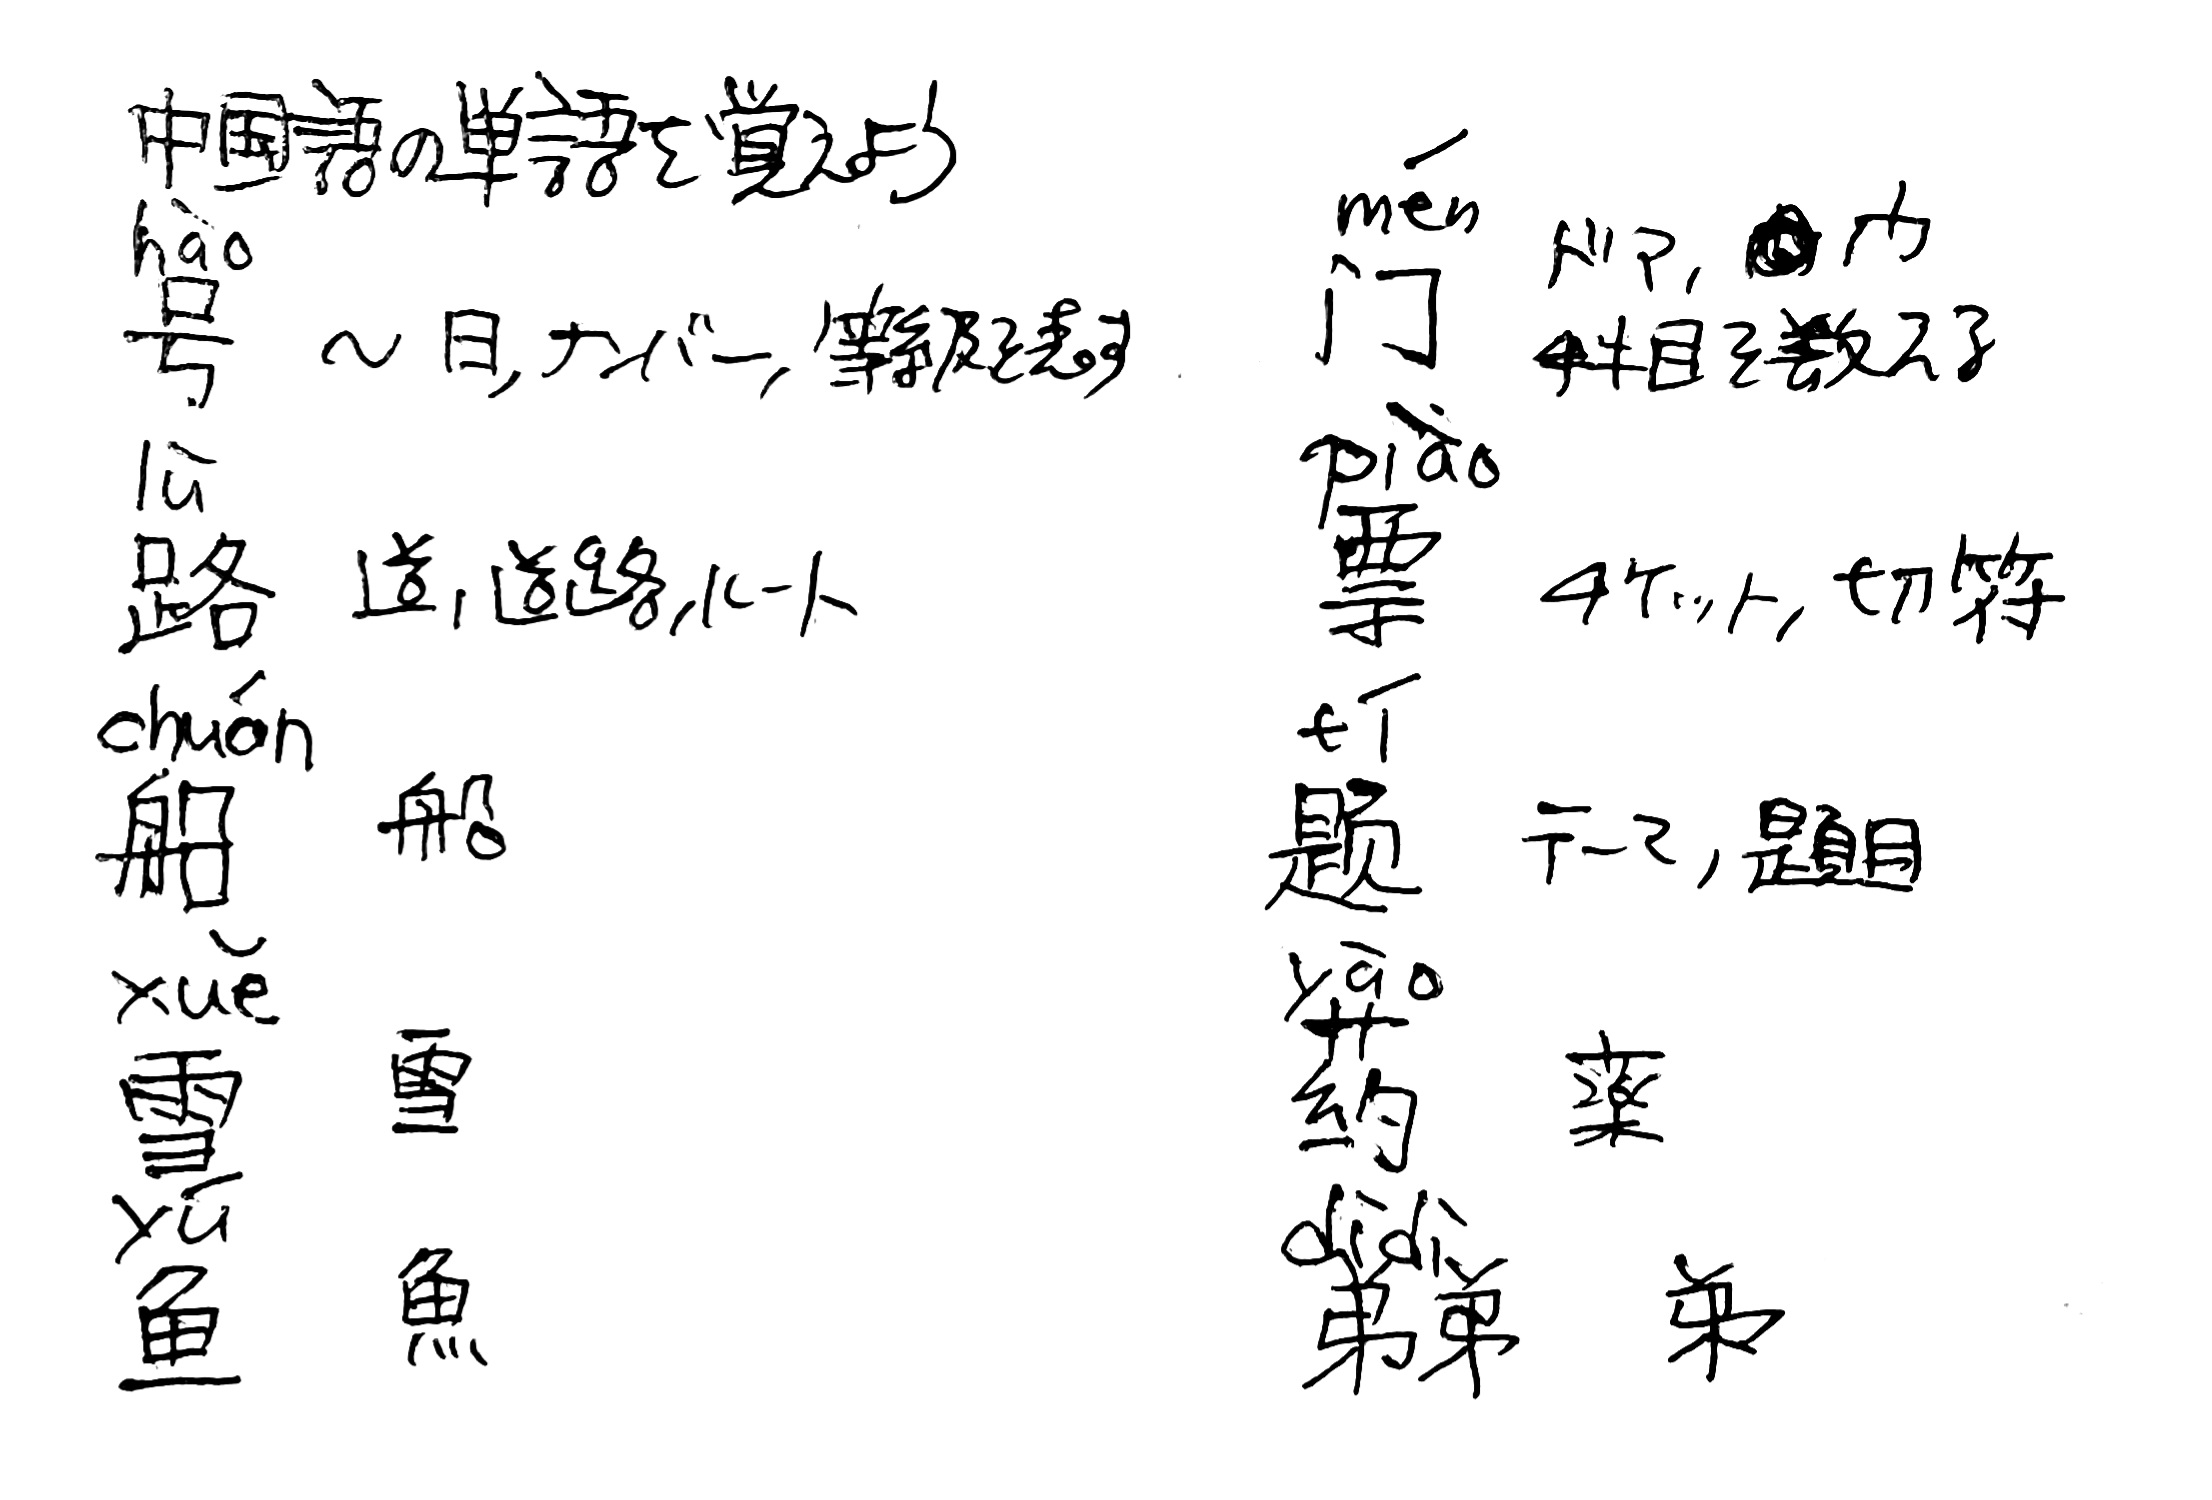 中国語の単語を覚えよう
hào
号 ～日,ナンバー,等級を表す
lù
路 道,道路,ルート
chuán
船 船
xuě
雪 雪
yú
鱼 魚
mén
门 ドア,
科目を数える
piào
票 チケット,切符
tí
题 テーマ,題目
yào
药 薬
dìdi
弟弟 弟